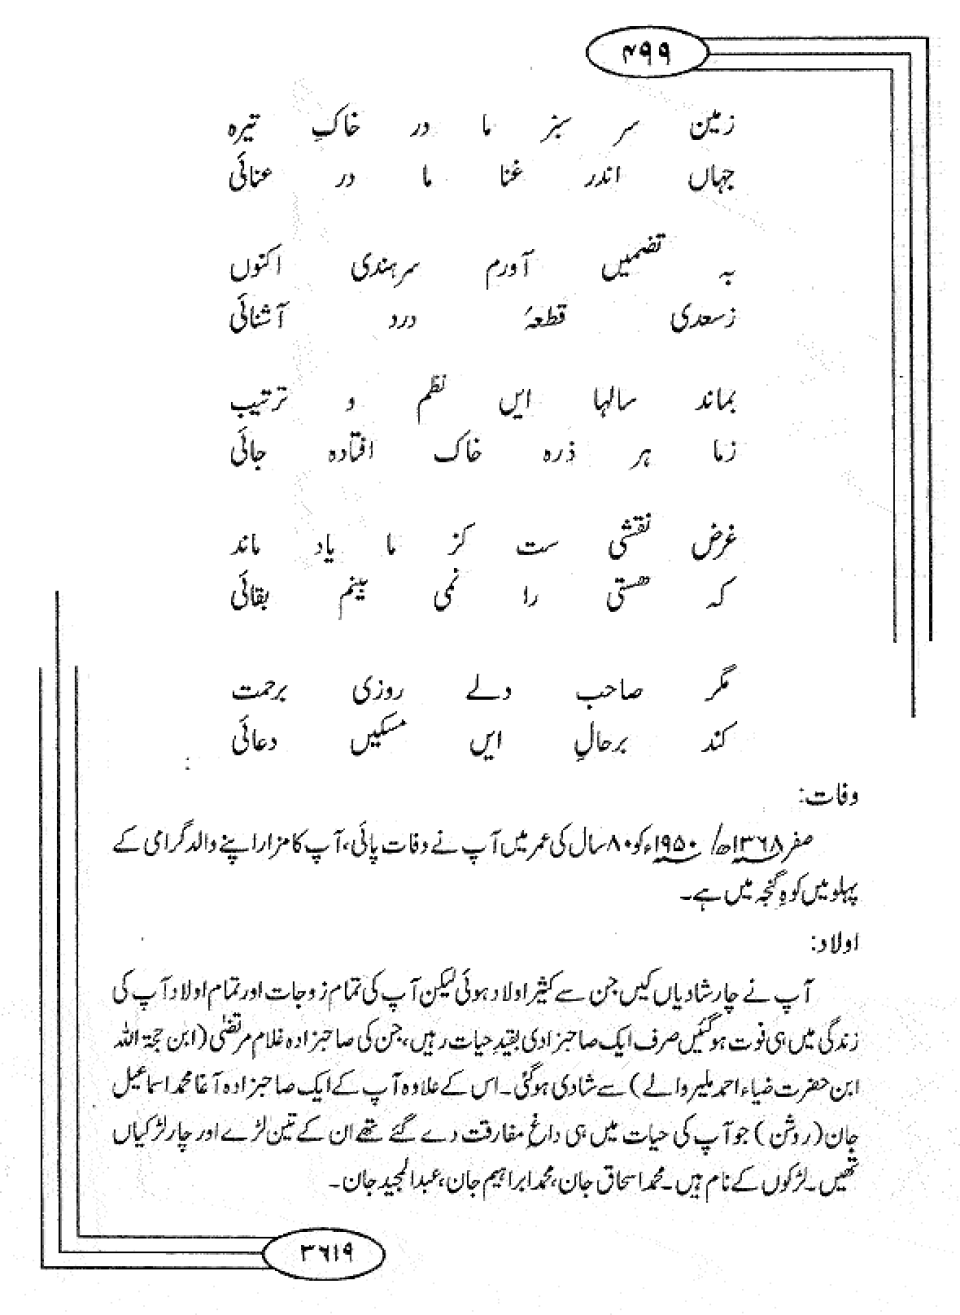 ۴۹۹
زمین سر سبز ما در خاکِ تیرہ
جہاں اندر غنا ما در عنائی
بہ تضمیں آورم سرہندی اکنوں
زسعدی قطعۂ درد آشنائی
بماند سالہا ایں نظم و ترتیب
زما ہر ذرہ خاک افتادہ جائی
غرض نقشی ست کز ما یاد ماند
کہ ھستی را نمی بینم بقائی
مگر صاحب دلے روزی برحمت
کند برحالِ ایں مسکیں دعائی
وفات:
صفر ۱۳۶۸ھ/ ۱۹۵۰ءکو۸۰سال کی عمر میں آپ نے وفات پائی، آپ کا مزار اپنے والد گرامی کے
پہلو میں کوہِ گنجہ میں ہے۔
اولاد:
آپ نے چار شادیاں کیں جن سے کثیر اولاد ہوئی لیکن آپ کی تمام زوجات اور تمام اولاد آپ کی
زندگی میں ہی فوت ہوگئیں صرف ایک صاحبزادی بقیدِ حیات رہیں، جن کی صاحبزادہ غلام مرتضٰی (ابن حجۃ اللہ
ابن حضرت ضیاء احمد ملیر والے) سے شادی ہوگئی۔ اس کے علاوہ آپ کے ایک صاحبزادہ آغا محمد اسماعیل
جان (روشن) جو آپ کی حیات میں ہی داغِ مفارقت دے گئے تھے ان کے تین لڑے اور چار لڑکیاں
تھیں۔ لڑکوں کے نام ہیں۔ محمد اسحاق جان، محمد ابراہیم جان، عبدالمجید جان۔
۳۶۱۹